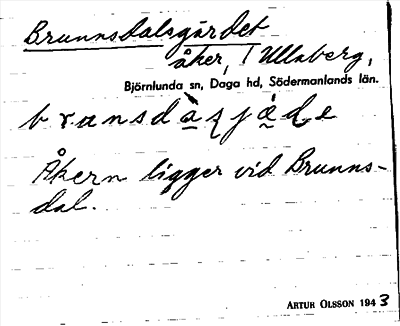 Brunnsdalsgärdet
åker, Ullaberg,
Björnlunda sn, Daga hd, Södermanlands län.
Åkern ligger vid Brunns-
dal.
ARTUR OLSSON 1943